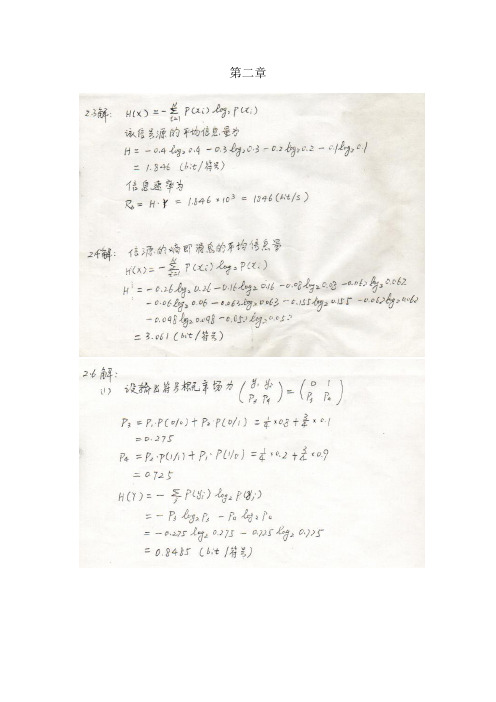 第二章
2.3解: H(X) = -∑_{i=1}^{N} P(xi) log₂ P(xi)
该信息源的平均信息量为
H = -0.4 log₂ 0.4 - 0.3 log₂ 0.3 - 0.2 log₂ 0.2 - 0.1 log₂ 0.1
= 1.846 (bit/符号)
信息速率为
R_b = H·r = 1.846×10³ = 1846 (bit/s)
2.4解: 信源的熵即消息的平均信息量
H(X) = -∑_{i=1}^{N} P(xi) log₂ P(xi)
H = -0.26 log₂ 0.26 - 0.16 log₂ 0.16 - 0.08 log₂ 0.08 - 0.062 log₂ 0.062
-0.06 log₂ 0.06 - 0.063 log₂ 0.063 - 0.155 log₂ 0.155 - 0.062 log₂ 0.062
-0.098 log₂ 0.098 - 0.052 log₂ 0.052
= 3.061 (bit/符号)
2.6解:
(1) 设输出符号概率场为 (y₁ y₂ / P₃ P₄) = (0 1 / P₃ P₄)
P₃ = P₁·P(0/0) + P₂·P(0/1) = 1/4×0.8 + 3/4×0.1
= 0.275
P₄ = P₂·P(1/1) + P₁·P(1/0) = 1/4×0.2 + 3/4×0.9
= 0.725
H(Y) = -∑_j P(yj) log₂ P(yj)
= -P₃ log₂ P₃ - P₄ log₂ P₄
= -0.275 log₂ 0.275 - 0.725 log₂ 0.725
= 0.8485 (bit/符号)